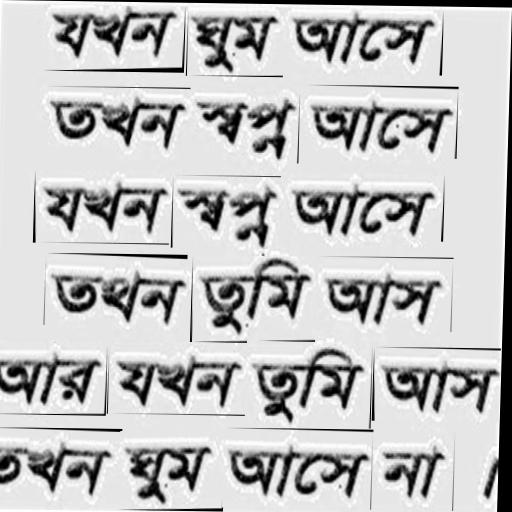 যখন ঘুম আসে
তখন স্বপ্ন আসে
যখন স্বপ্ন আসে
তখন তুমি আস
আর যখন তুমি আস
তখন ঘুম আসে না ।